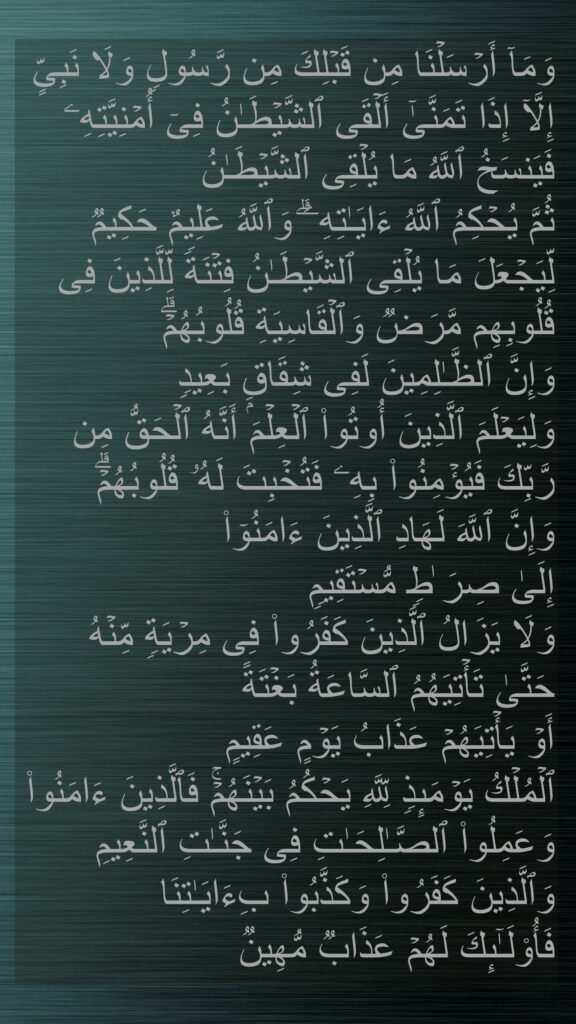 وَمَآ أَرۡسَلۡنَا مِن قَبۡلِكَ مِن رَّسُولٖ وَلَا نَبِيٍّ
إِلَّآ إِذَا تَمَنَّىٰٓ أَلۡقَى ٱلشَّيۡطَٰنُ فِيٓ أُمۡنِيَّتِهِۦ
فَيَنسَخُ ٱللَّهُ مَا يُلۡقِى ٱلشَّيۡطَٰنُ
ثُمَّ يُحۡكِمُ ٱللَّهُ ءَايَٰتِهِۦۗ وَٱللَّهُ عَلِيمٌ حَكِيمٞ
لِّيَجۡعَلَ مَا يُلۡقِى ٱلشَّيۡطَٰنُ فِتۡنَةٗ لِّلَّذِينَ فِى
قُلُوبِهِم مَّرَضٞ وَٱلۡقَاسِيَةِ قُلُوبُهُمۡۗ
وَإِنَّ ٱلظَّٰلِمِينَ لَفِى شِقَاقِۭ بَعِيدٖ
وَلِيَعۡلَمَ ٱلَّذِينَ أُوتُواْ ٱلۡعِلۡمَ أَنَّهُ ٱلۡحَقُّ مِن
رَّبِّكَ فَيُؤۡمِنُواْ بِهِۦ فَتُخۡبِتَ لَهُۥ قُلُوبُهُمۡۗ
وَإِنَّ ٱللَّهَ لَهَادِ ٱلَّذِينَ ءَامَنُوٓاْ
إِلَىٰ صِرَٰطٖ مُّسۡتَقِيمٖ
وَلَا يَزَالُ ٱلَّذِينَ كَفَرُواْ فِى مِرۡيَةٖ مِّنۡهُ
حَتَّىٰ تَأۡتِيَهُمُ ٱلسَّاعَةُ بَغۡتَةً
أَوۡ يَأۡتِيَهُمۡ عَذَابُ يَوۡمٍ عَقِيمٍ
ٱلۡمُلۡكُ يَوۡمَئِذٖ لِّلَّهِ يَحۡكُمُ بَيۡنَهُمۡۚ فَٱلَّذِينَ ءَامَنُواْ
وَعَمِلُواْ ٱلصَّٰلِحَٰتِ فِى جَنَّٰتِ ٱلنَّعِيمِ
وَٱلَّذِينَ كَفَرُواْ وَكَذَّبُواْ بِـَٔايَٰتِنَا
فَأُوْلَٰٓئِكَ لَهُمۡ عَذَابٞ مُّهِينٞ